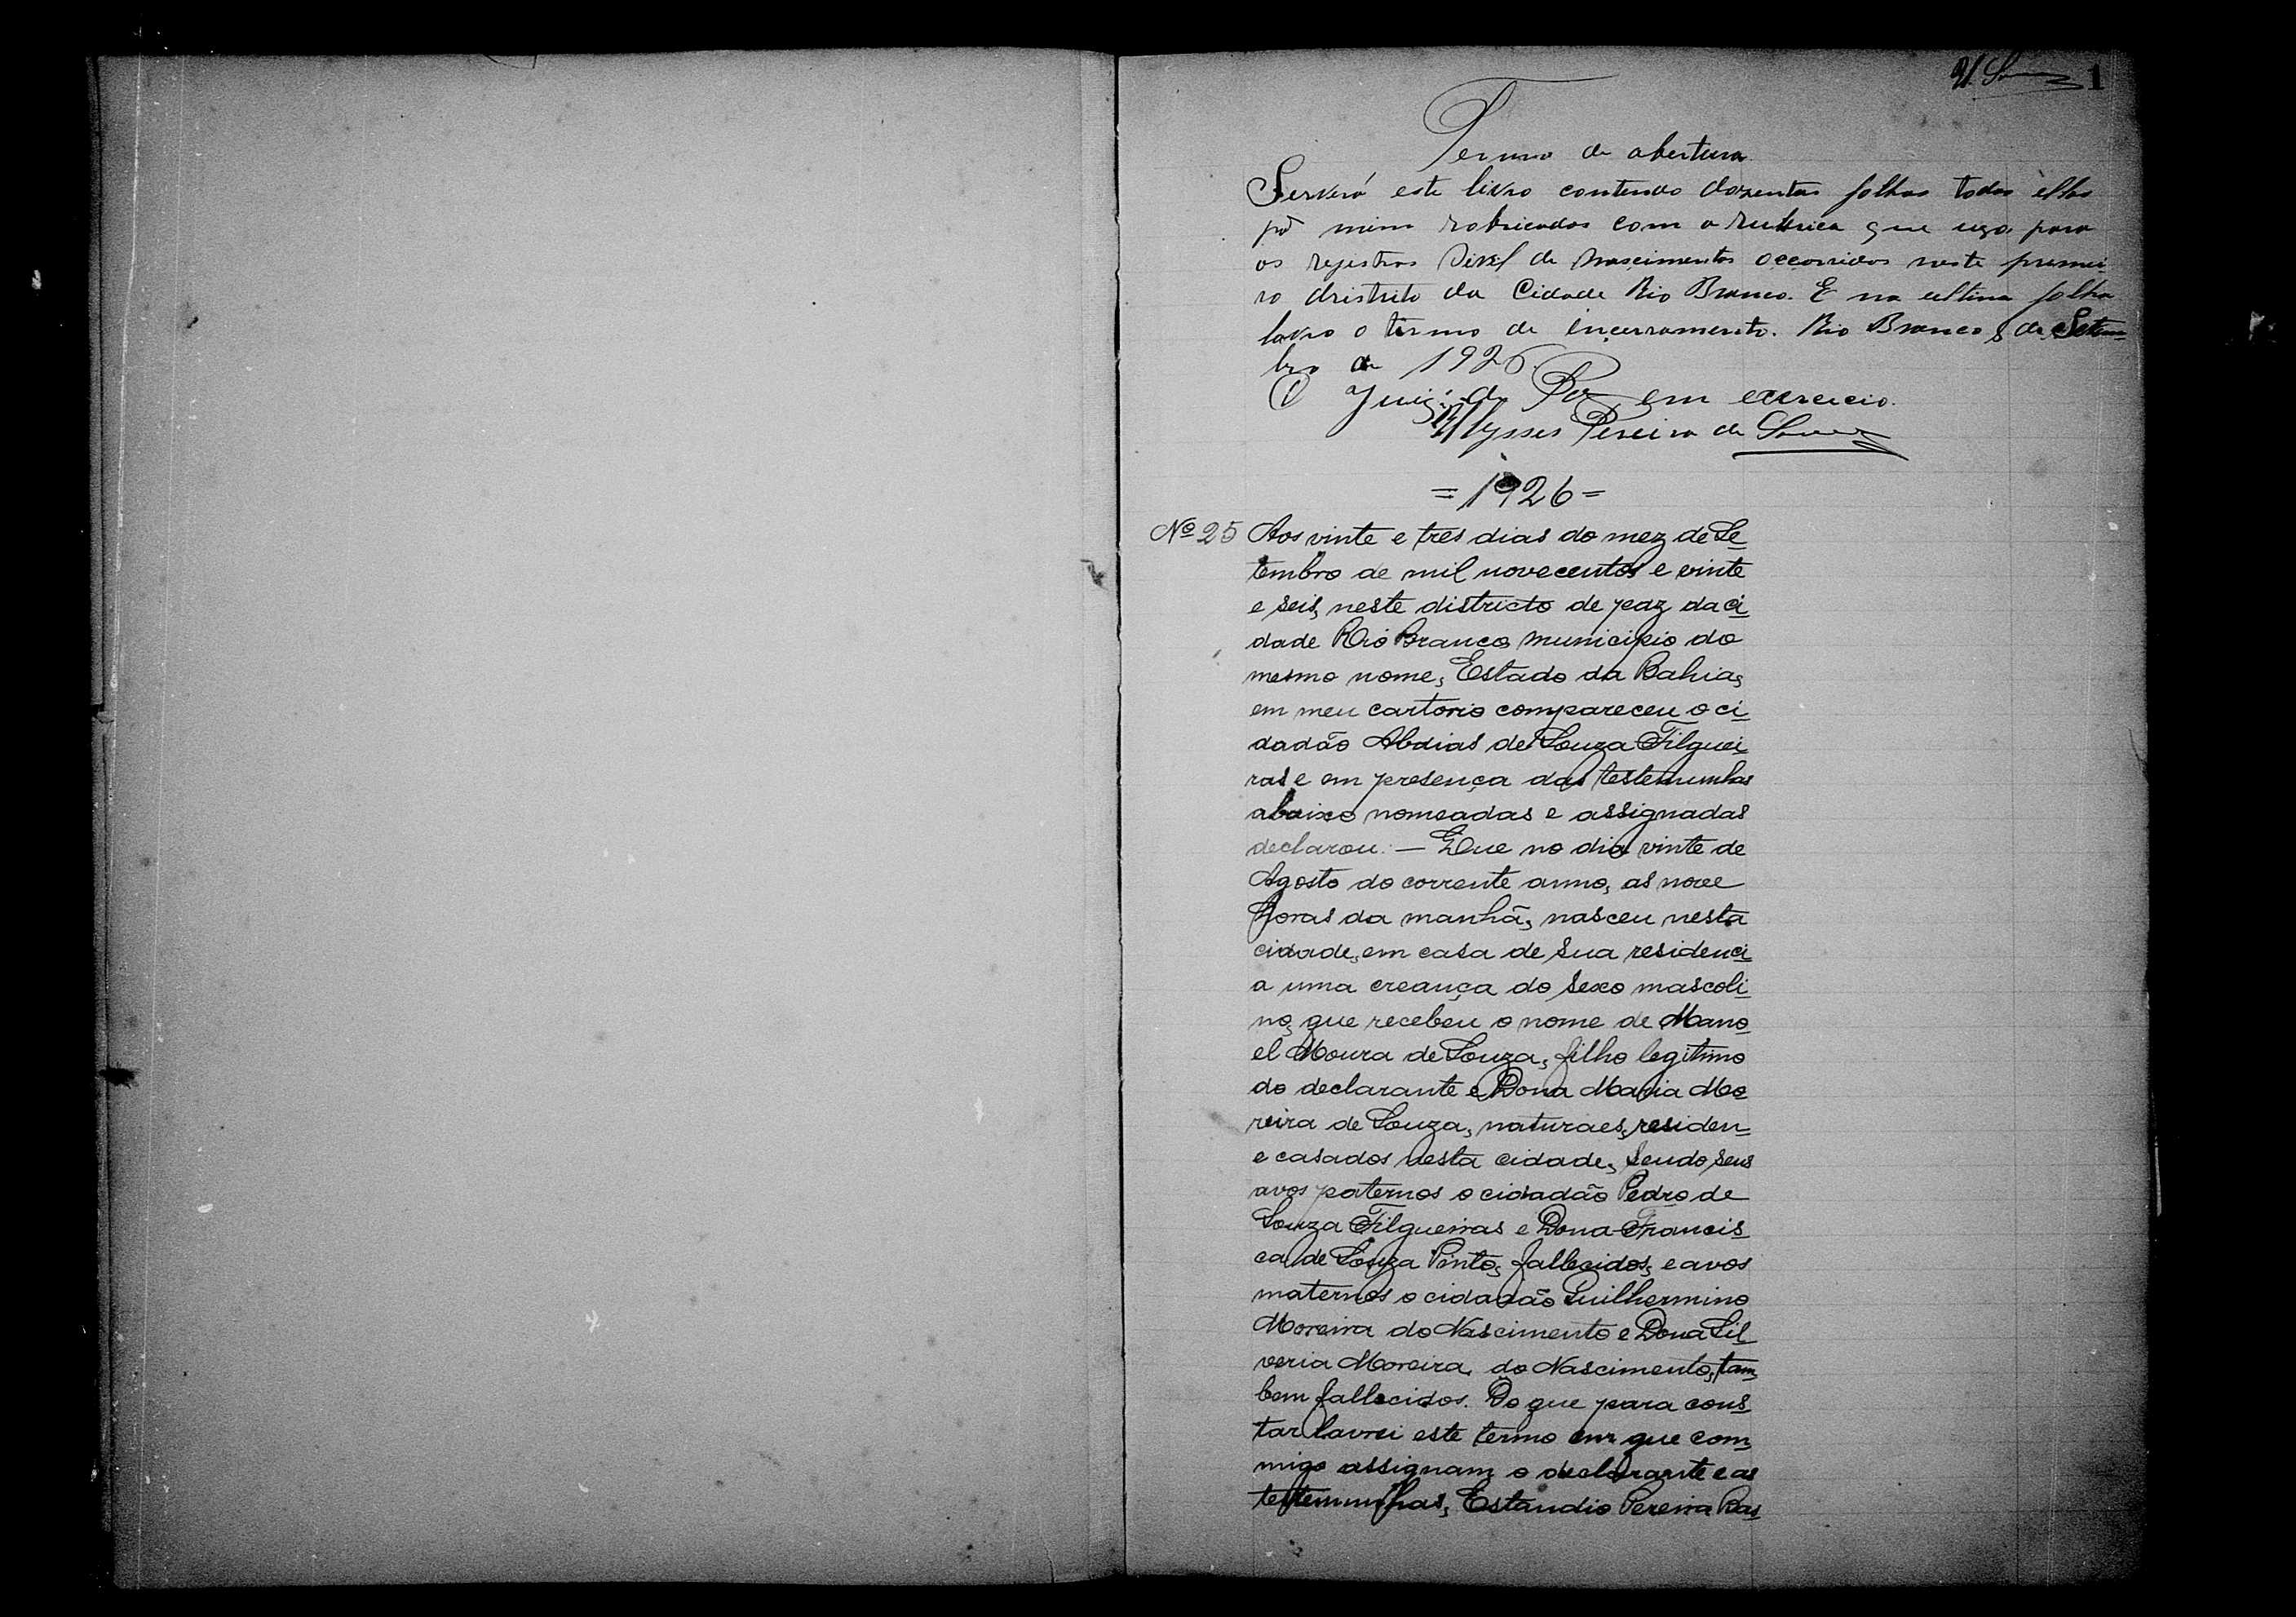 U. Souza 1
Termo de abertura
Servirá este livro contendo dozentas folhas todas ellas
pr mim robricadas com a rubrica que uzo para
os rejistros sivil de nascimentos occorridos neste premei
ro dristrito da Cidade Rio Branco. E na ultima folha
lavro o termo de encerramento. Rio Branco 8 de Setem-
bro de 1926.
O Juiz de Paz em exercicio.
Ulysses Pereira de Souza
= 1926 =
Nº 25 Aos vinte e tres dias do mez de Se-
tembro de mil novecentos e vinte
e seis, neste districto de paz da ci-
dade Rio Branco, municipio do
mesmo nome, Estado da Bahia,
em meu cartorio compareceu o ci-
dadão Abdias de Souza Filguei
ras e em presença das testemunhas
abaixo nomeadas e assignadas
declarou: — Que no dia vinte de
Agosto do corrente anno, as nove
horas da manhã, nasceu nesta
cidade, em casa de sua residenci-
a uma creança do sexo mascoli-
no, que recebeu o nome de Mano-
el Moura de Souza, filho legitimo
do declarante e Dona Maria Mo-
reira de Souza, naturaes, residen-
e casados nesta cidade, sendo seus
avos paternos o cidadão Pedro de
Souza Filgueiras e Dona Francis-
ca de Souza Pinto, fallecidos, e avos
maternos o cidadão Guilhermino
Moreira do Nascimento e Dona Sil-
veria Moreira do Nascimento, tam-
bem fallecidos. Do que para cons-
tar lavrei este termo em que com-
migo assignam o declarante e as
testemunhas, Estandio Pereira Bas-